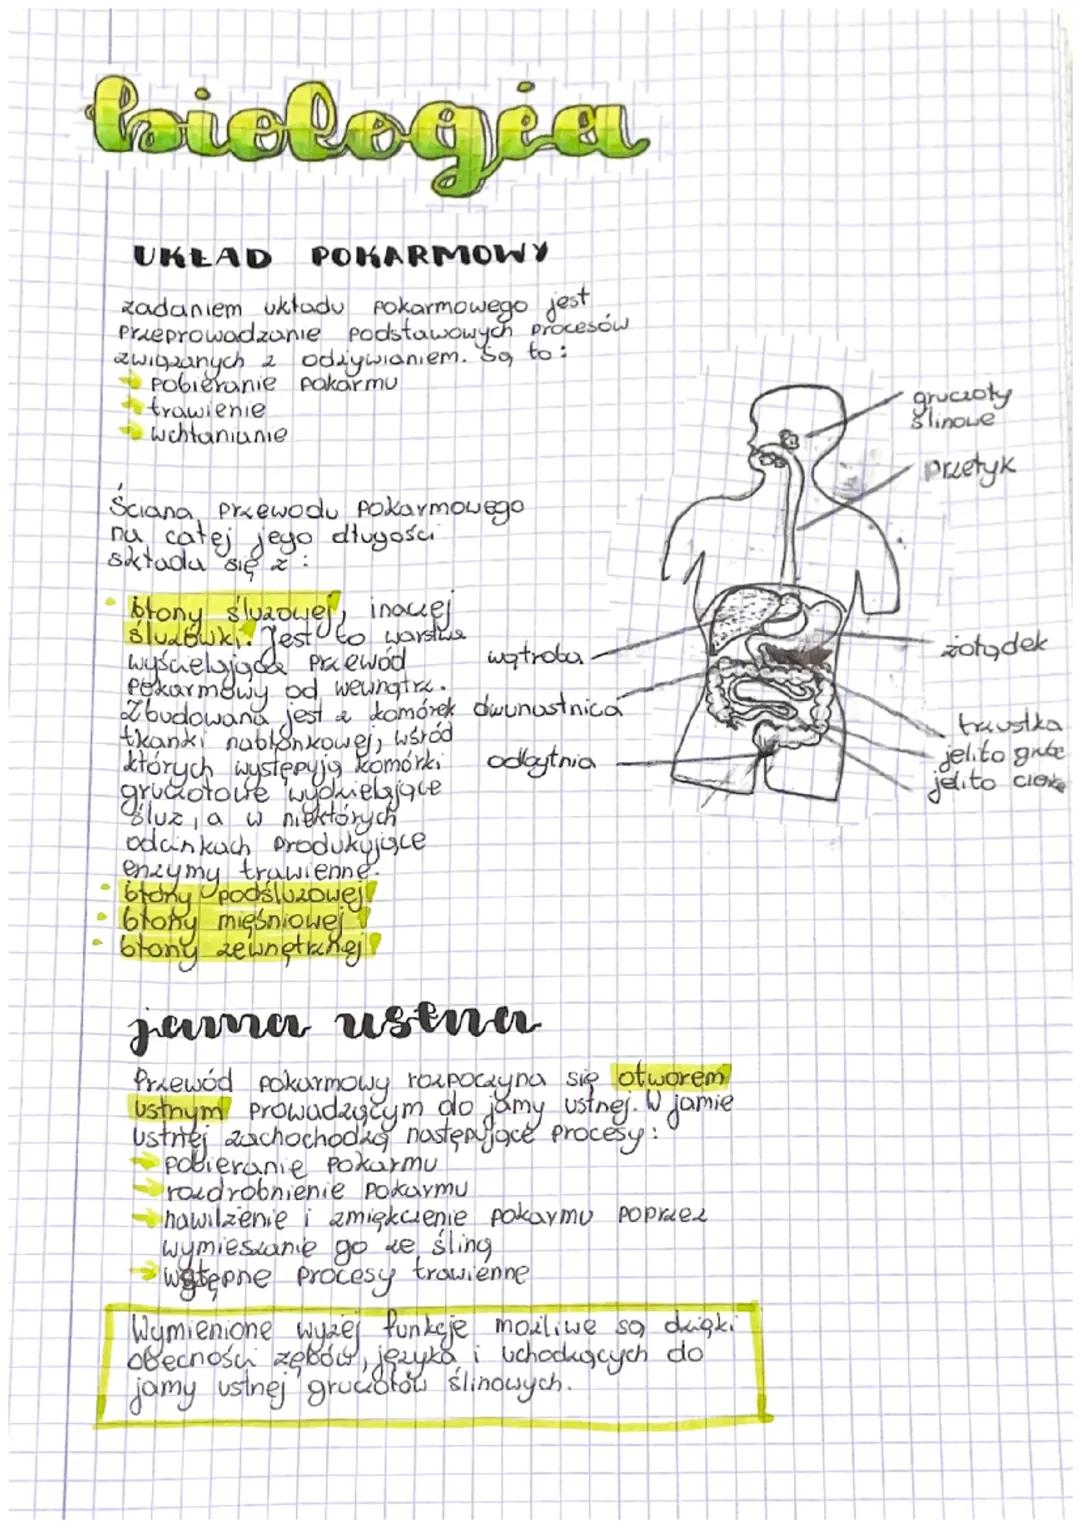 biologia
UKŁAD POKARMOWY
zadaniem układu pokarmowego jest
przeprowadzanie podstawowych procesów
związanych z odżywianiem. Są to:
pobieranie pokarmu
trawienie
wchłanianie
Ściana przewodu pokarmowego
na całej jego długości
składa się z:
błony śluzowej, inaczej
śluzówki. Jest to warstwa
wyścielająca przewód
pokarmowy od wewnątrz.
Zbudowana jest z komórek
tkanki nabłonkowej, wśród
których występują komórki
gruczołowe wydzielające
śluz, a w niektórych
odcinkach produkujące
enzymy trawienne.
błony podśluzowej
błony mięśniowej
błony zewnętrznej
gruczoły
ślinowe
przełyk
wątroba
żołądek
dwunastnica
trzustka
odbytnia
jelito grube
jelito cienkie
jama ustna
Przewód pokarmowy rozpoczyna się otworem
ustnym prowadzącym do jamy ustnej. W jamie
ustnej zachochodzą następujące procesy:
pobieranie pokarmu
rozdrobnienie pokarmu
nawilżenie i zmiękczenie pokarmu poprzez
wymieszanie go ze śliną
wstępne procesy trawienne
Wymienione wyżej funkcje możliwe są dzięki
obecności zębów, języka i uchodzących do
jamy ustnej gruczołów ślinowych.